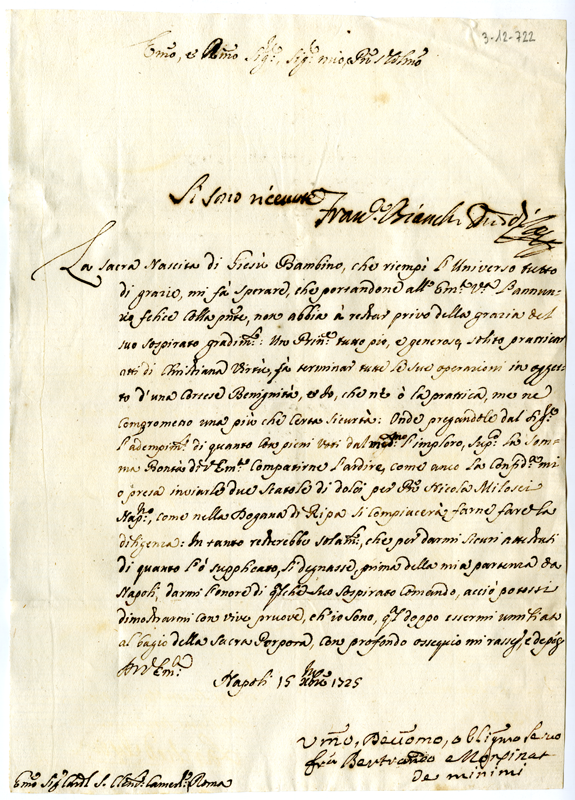 3-12-722
Emo, e Rmo Sigr, Sigr mio, Pne Colmo
Si sono ricevute Franco Bianchi
La sacra Nascita di Giesù Bambino, che riempì l'Universo tutto
di grazie, mi fà sperare, che portandone all' Emza Vra l'annun-
zio felice colla pnte, non abbia à restar privo della grazia del
suo sospirato gradimto: Un Prinpe tutto pio, e generoso, solito practicar
atti di Christiana Virtù, fà terminar tute le sue operazioni in ogget-
to d'una cortese Benignità, ed io, che nè ò la prattica, me ne
comprometto una più che certa sicurtà: Onde pregandole dal Sigre
l'adempimto di quanto con pieni Voti dal medmo l'imploro, suppco la som-
ma Bontà di V Emza compatirne l'ardire, come anco la confidza mi
ò presa inviarle due scatole di dolci per Pne Nicola Milosci
Napno, come nella Dogana di Ripa si compiacerà farne fare la
diligenza: In tanto resterebbe solamte, che per darmi sicuri attestati
di quanto l'ò supplicato, si degnasse, prima della mia partenza da
Napoli, darmi l'onore di qlche suo sospirato comando, acciò potessi
dimostrarmi con vive pruove, ch'io sono, ql doppo essermi umiliato
al bagio della Sacra Porpora, con profondo ossequio mi rassego, e
Di V Emza
Napoli 15 Xbre 1725
Vmo, Devomo, obligmo servo
fra Bertrando Monsinat
de minimi
Emo Sigr Cardl S. Clemte Camerlo Roma